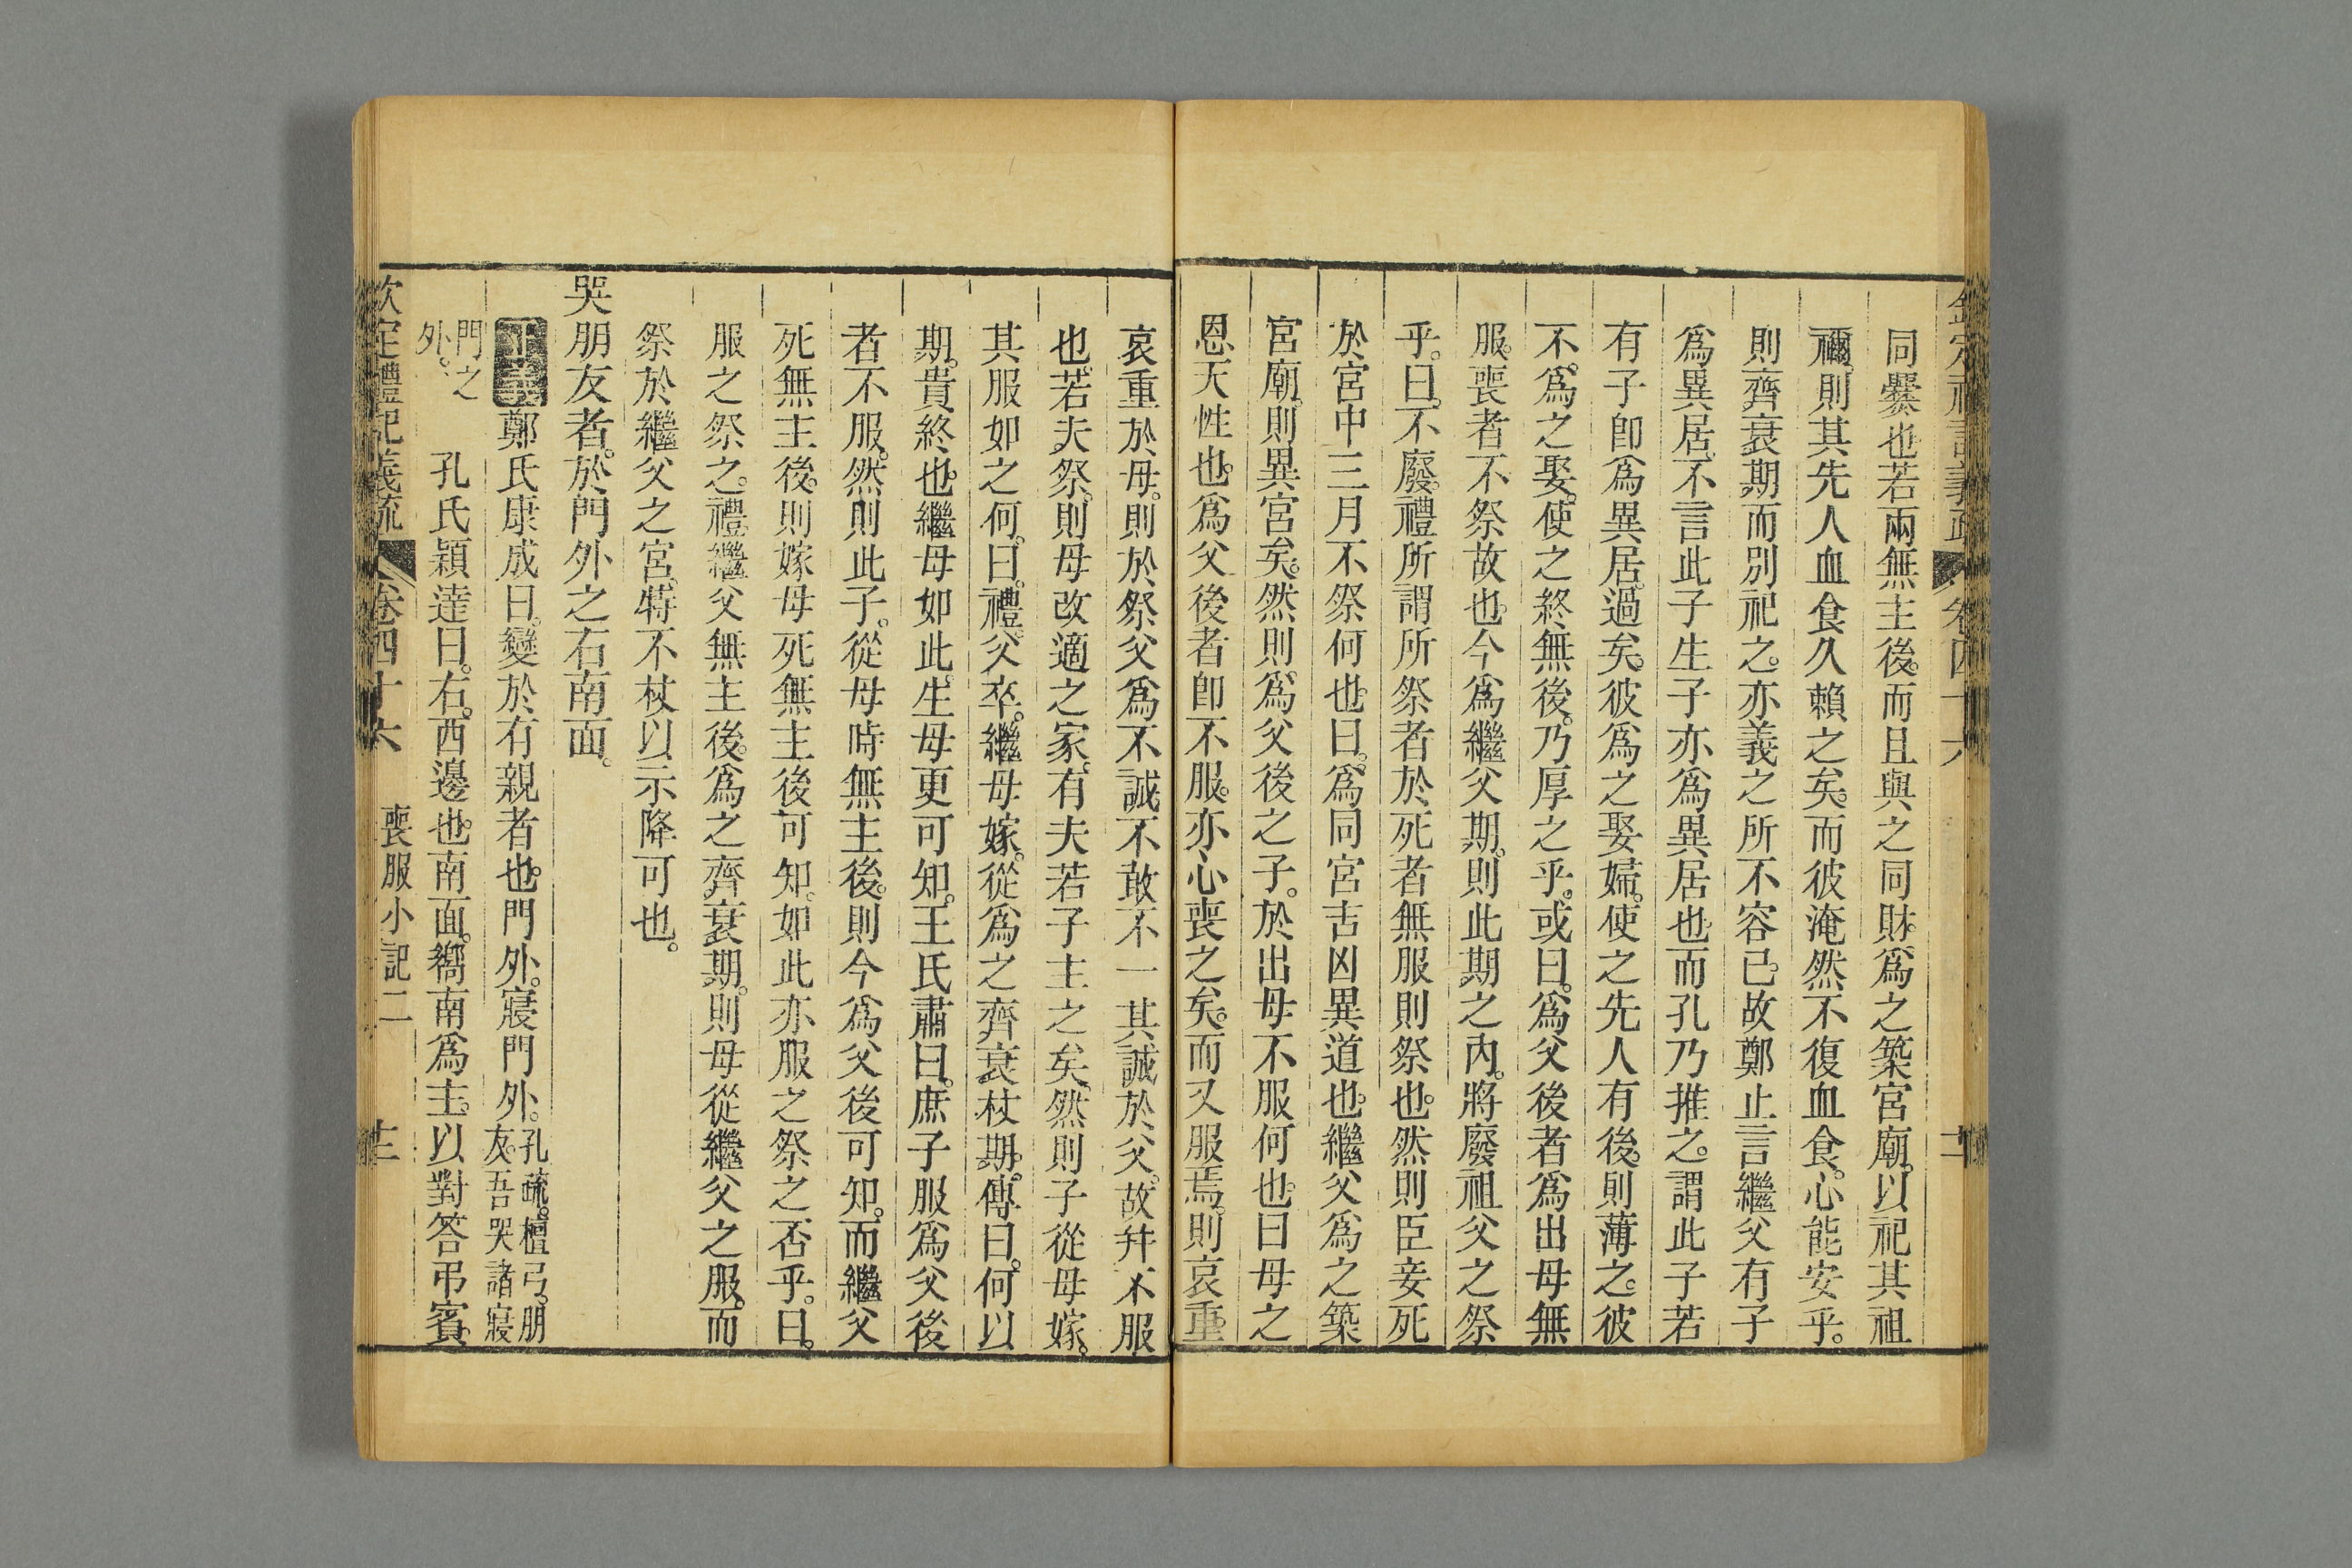 欽定禮記義疏 卷四十六
同爨也若兩無主後。而且與之同財。爲之築宮廟。以祀其祖
禰。則其先人血食久賴之矣。而彼淹然不復血食。心能安乎。
則齊衰期而別祀之。亦義之所不容已。故鄭止言繼父有子
爲異居。不言此子生子亦爲異居也。而孔乃推之。謂此子若
有子卽爲異居。過矣。彼爲之娶婦。使之先人有後。則薄之。彼
不。爲之娶。使之終無後。乃厚之乎。或曰。爲父後者爲出母無
服。喪者不祭故也。今爲繼父期。則此期之內。將廢祖父之祭
乎。曰。不廢。禮所謂所祭者於死者無服則祭也。然則臣妾死
於宮中三月不祭何也。曰。爲同宮古凶異道也。繼父爲之築
宮廟。則異宮矣。然則爲父後之子。於出母不服何也。曰母之
恩天性也。爲父後者卽不服。亦心喪之矣。而又服焉。則哀重。
哀重於母。則於祭父爲不誠。不敢不一其誠於父。故幷不服
也。若夫祭。則母改適之家。有夫若子主之矣。然則子從母嫁。
其服如之何。曰。禮。父卒。繼母嫁。從爲之齊衰杖期。傳曰。何以
期。貴終也。繼母如此。生母更可知。王氏肅曰。庶子服爲父後
者不服。然則此子。從母時無主後。則今爲父後可知。而繼父
死無主後。則嫁母死無主後可知。如此亦服之祭之否乎。曰。
服之祭之。禮繼父無主後。爲之齊衰期。則母從繼父之服。而
祭於繼父之宮。特不杖以示降可也。
哭朋友者。於門外之右南面。
正義鄭氏康成曰。變於有親者也。門外。寢門外。孔疏。檀弓。朋
友。吾哭諸寢
門之
外。 孔氏穎達曰。右。西邊也。南面。嚮南爲主。以對答弔賓。
欽定禮記義疏 卷四十六 喪服小記二 十三